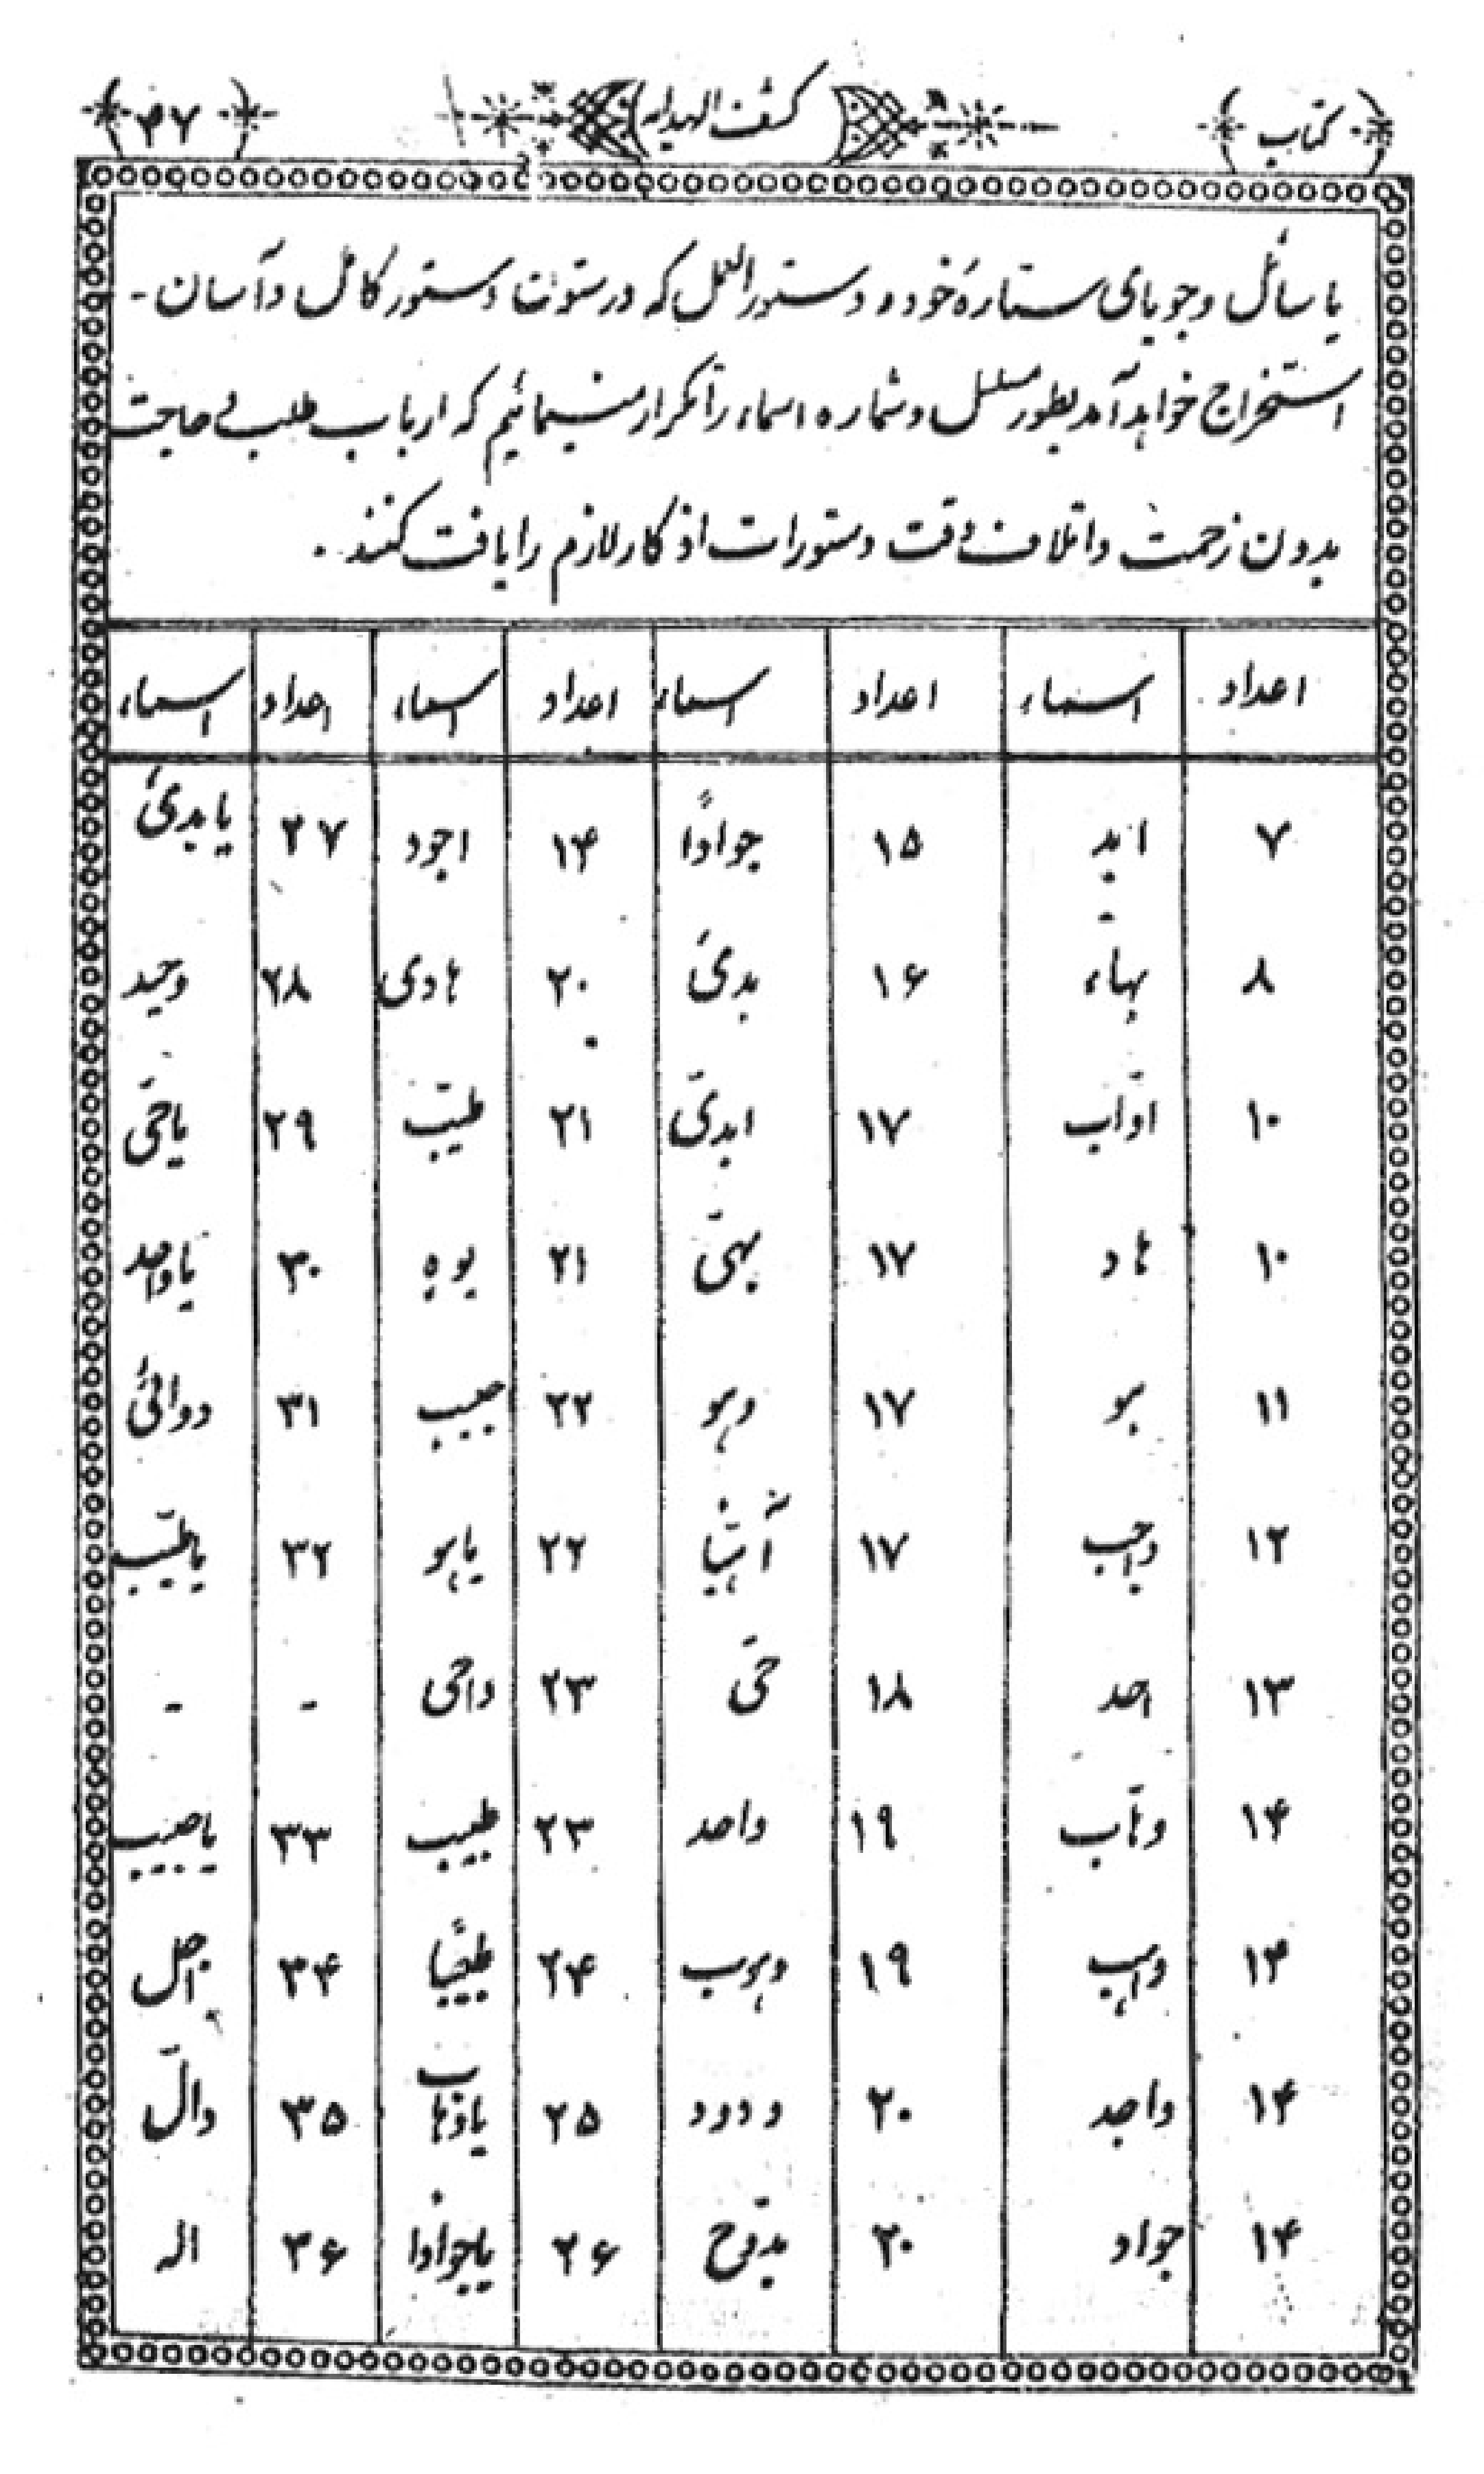 کتاب کشف الهدایه ۴۷
یا سائل و جویای ستاره خود و دستورالعمل که در ستونت دستور کامل و آسان -
استخراج خواهد آمد بطور مسلسل و شماره اسماء را تکرار مینمائیم که ارباب طلب حاجت
بدون زحمت و اتلاف وقت دستورات اذکار لازم را یافت کنند .
اعداد اسماء اعداد اسماء اعداد اسماء اعداد اسماء
۷ ابد ۱۵ جواداً ۱۴ اجود ۲۷ یا بدئ
۸ بهاء ۱۶ بدئ ۲۰ هادی ۲۸ وحید
۱۰ اوّاب ۱۷ ابدیّ ۲۱ طیّب ۲۹ یا حیّ
۱۰ هاد ۱۷ بهیّ ۲۱ یوه ۳۰ یا واحد
۱۱ هو ۱۷ وهو ۲۲ حبیب ۳۱
۱۲ واجب ۱۷ ۲۲ یاهو ۳۲ یا طیّب
۱۳ احد ۱۸ حیّ ۲۳ داحی - -
۱۴ وهّاب ۱۹ واحد ۲۳ طبیب ۳۳ یا حبیب
۱۴ واهب ۱۹ وهوب ۲۴ طبیباً ۳۴ اجل
۱۴ واجد ۲۰ ودود ۲۵ یا وهاب ۳۵ دالّ
۱۴ جواد ۲۰ بدّوح ۲۶ یا جوادا ۳۶ اله